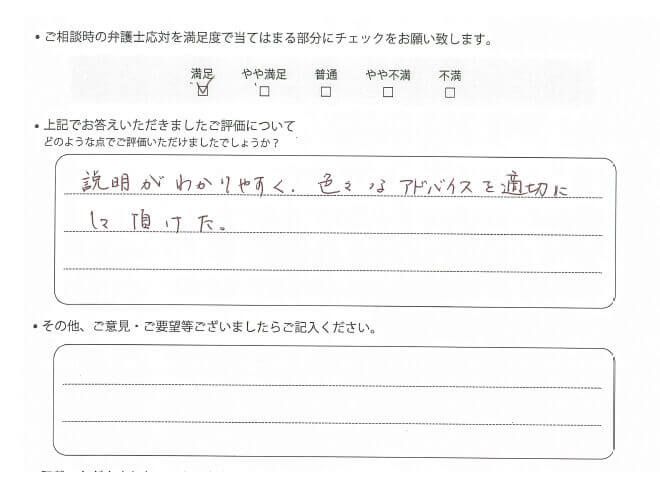 • ご相談時の弁護士応対を満足度で当てはまる部分にチェックをお願い致します。
満足 やや満足 普通 やや不満 不満
☑ □ □ □ □
• 上記でお答えいただきましたご評価について
どのような点でご評価いただけましたでしょうか？
説明がわかりやすく、色々なアドバイスを適切に
して頂けた。
• その他、ご意見・ご要望等ございましたらご記入ください。